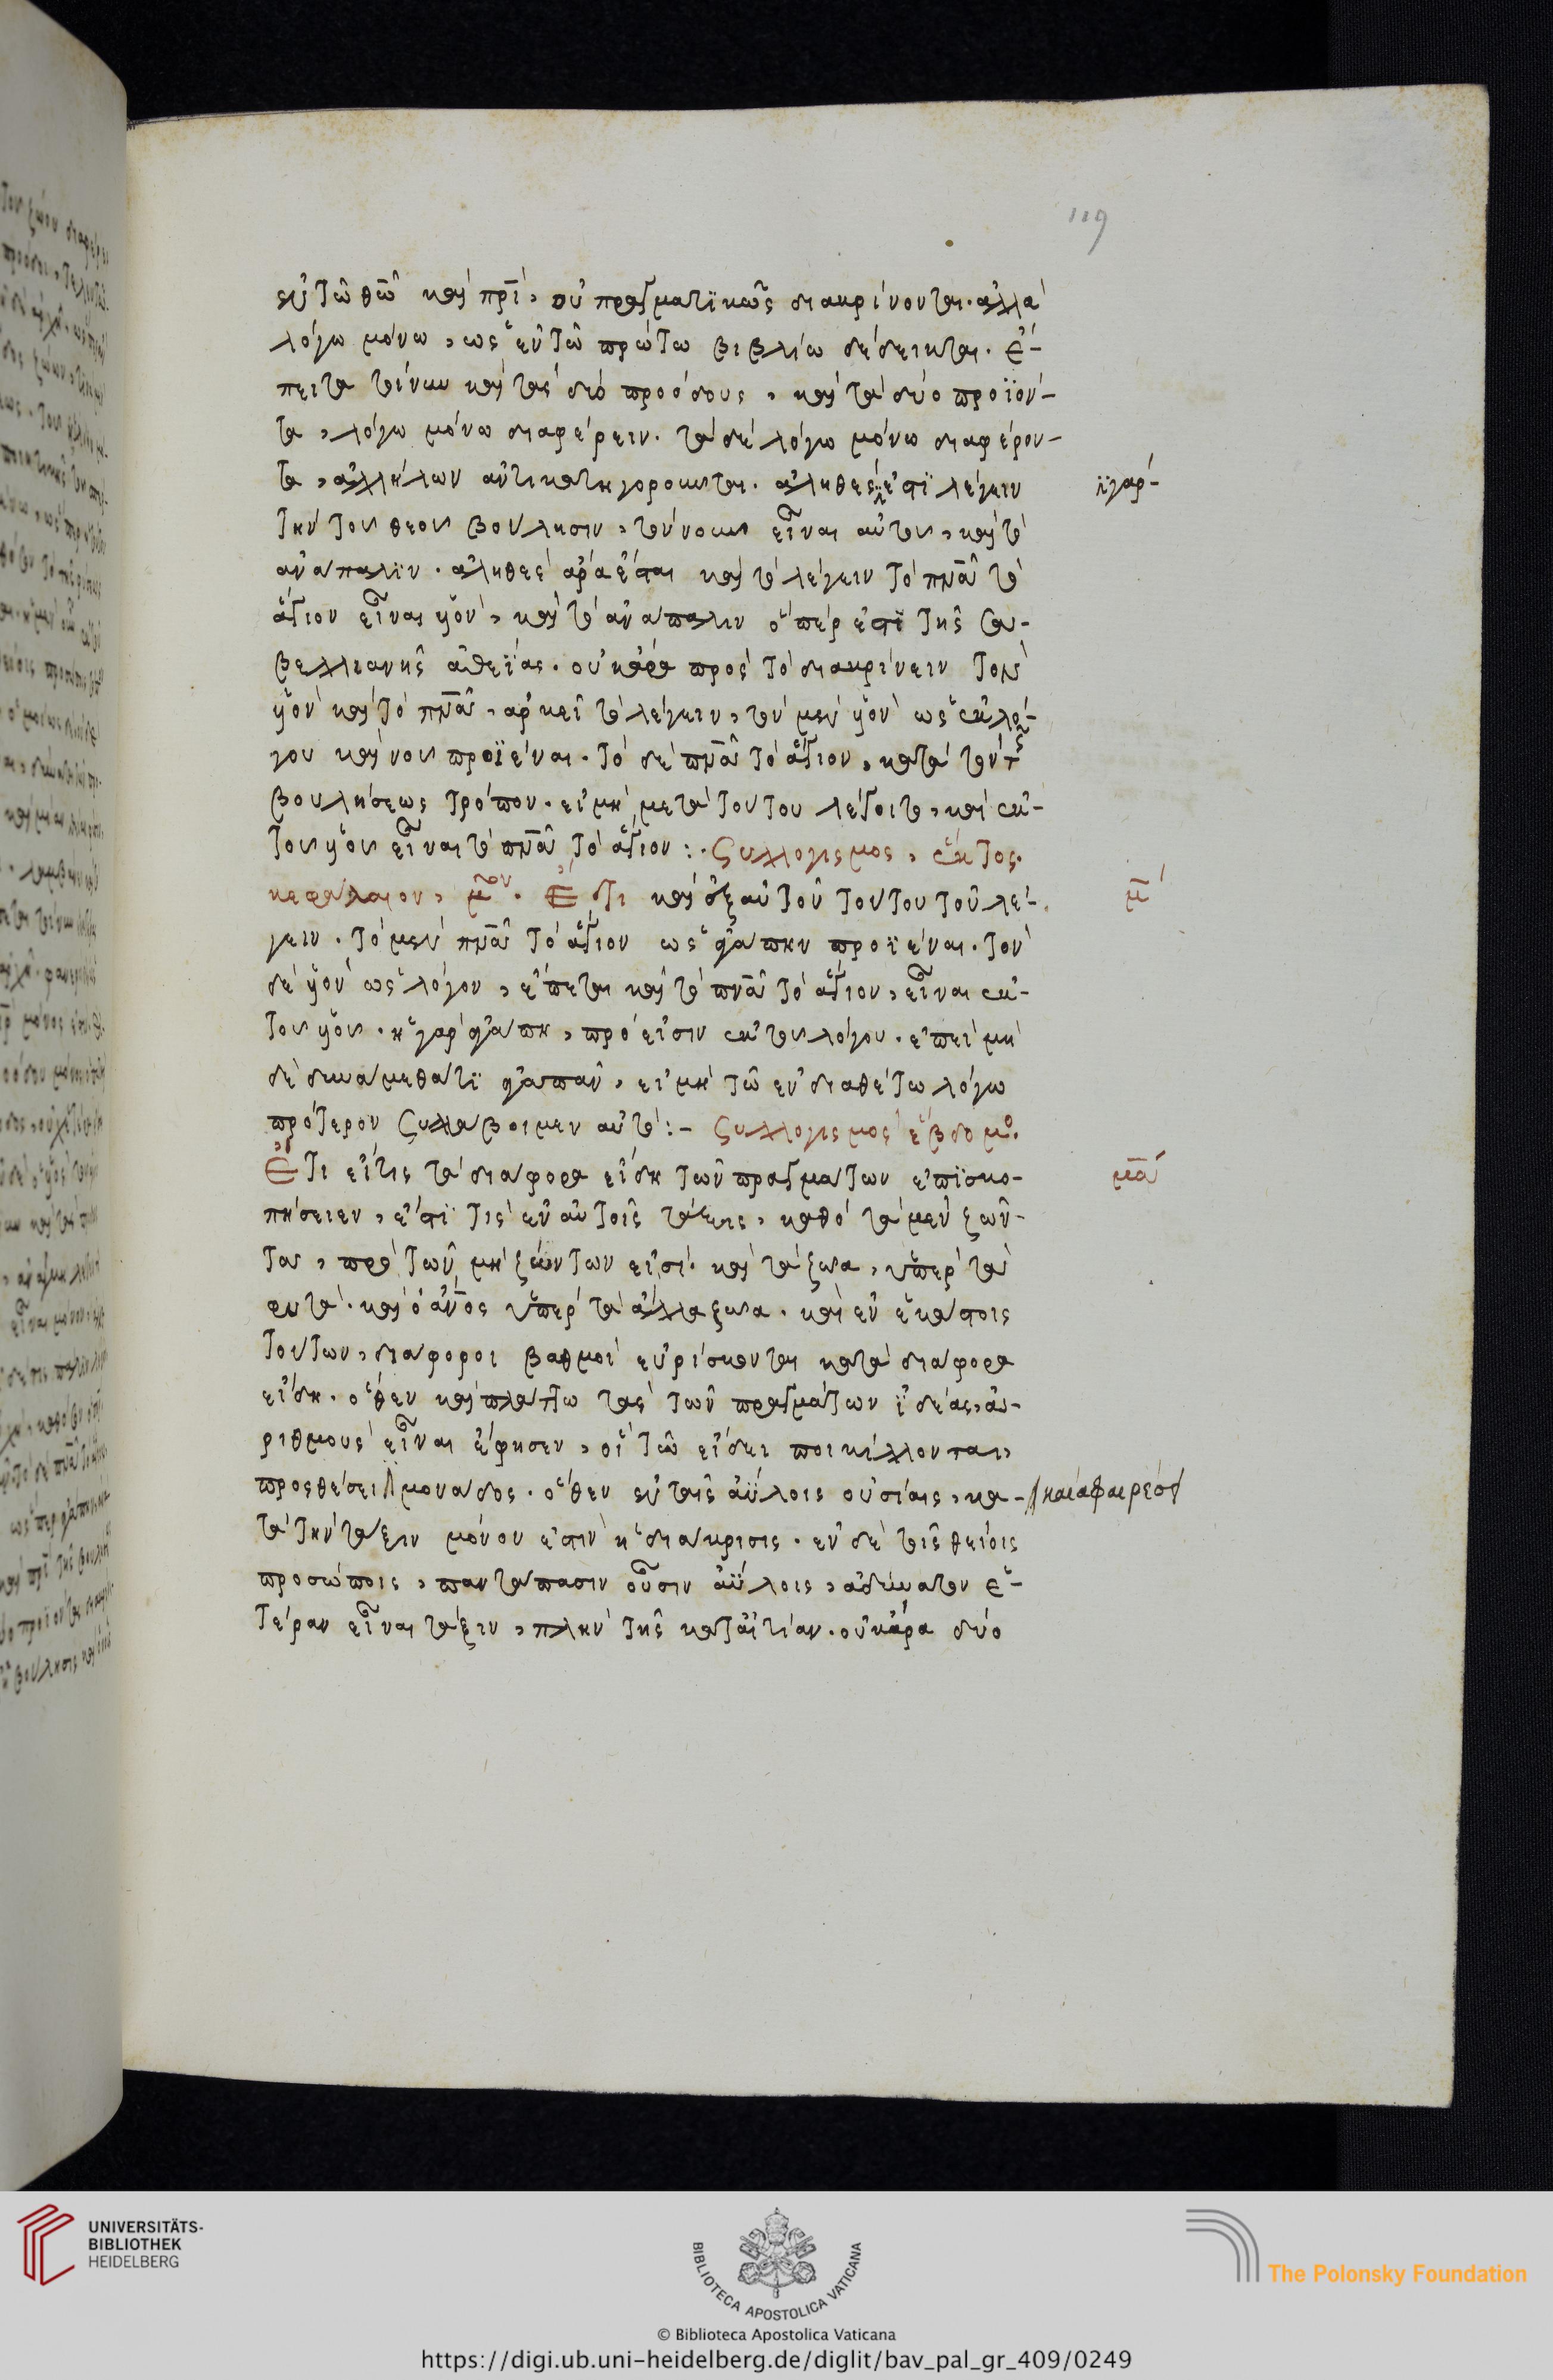 119
ἐν τῶ θω̅ καὶ πρι̅, οὐ πραγματϊκῶς διακρίνονται. ἀλλὰ
λόγω μόνω, ὡς ἐν τῶ πρώτω βιβλίω δέδεικται. ἔ-
πειτα τείνειν καὶ τὰς δύο προόδους, καὶ τὰ δύο προϊόν-
τα, λόγω μόνω διαφέρειν. τὰ δὲ λόγω μόνω διαφέρον-
τα, ἀλλήλων ἀντικατηγοροῦνται. ἀληθὲς ἐστὶ λέγειν
ἢ γὰρ-
τὴν τοῦ θεοῦ βούλησιν, τὸν νοῦν εἶναι αὐτοῦ, καὶ τὸ
ἀνάπαλϊν. ἀληθὲς ἄρα ἔσται καὶ τὸ λέγειν τὸ πνα̅ τὸ
ἅγιον εἶναι υἱὸν, καὶ τὸ ἀνάπαλιν ὅπέρ ἐστϊ τῆς σα-
βελλιανῆς ἀθεΐας. οὐκ ἄρα πρὸς τὸ διακρίνειν τὸν
υἱὸν καὶ τὸ πνα̅, ἀρκεῖ τὸ λέγειν, τὸν μὲν υἱὸν ὡς ἐκ λό-
γου καὶ νοῦ προϊέναι. τὸ δὲ πνα̅ τὸ ἅγιον, κατὰ τὸν τῆς
βουλήσεως τρόπον. εἰ μὴ μετὰ τούτου λέγοιτο, καὶ ἐκ
τοῦ υἱοῦ εἶναι τὸ πνα̅ τὸ ἅγιον :. Συλλογισμὸς, ἕκτος.
κεφάλαιον, μ̅ον. Ἔτι καὶ ἐξ αὐτοῦ τούτου τοῦ λέ-
μ̅
γειν. τὸ μὲν πνα̅ τὸ ἅγιον ὡς ἀγάπην προϊέναι. τὸν
δὲ υἱὸν ὡς λόγον, ἕπεται καὶ τὸ πνα̅ τὸ ἅγιον, εἶναι ἐκ
τοῦ υἱοῦ. ἡ γὰρ ἀγάπη, πρόεισιν ἐκ τοῦ λόγου. ἐπεὶ μὴ
δὲ δυνάμεθά τϊ ἀγαπᾶν, εἰ μὴ τῶ ἐνδιαθέτω λόγω
πρότερον συλλάβοιμεν αὐτό :- Συλλογισμὸς ἕβδομο.
Ἔτι εἴ τις τὰ διάφορα εἴδη τῶν πραγμάτων ἐπϊσκο-
μ̅α
πήσειεν, ἐστϊ τὶς ἐν αὐτοῖς τάξις, καθὸ τὰ μὲν ζῶν-
τα, πρὸ τῶν μὴ ζώντων εἰσί. καὶ τὰ ζῶα, ὑπὲρ τὰ
φυτά. καὶ ὁ ἄνος ὑπὲρ τὰ ἄλλα ζῶα. καὶ ἐν ἑκάστοις
τούτων, διάφοροι βαθμοὶ εὑρίσκονται κατὰ διάφορα
εἴδη. ὅθεν καὶ πλάτων τὰς τῶν πραγμάτων ϊδέας, ἀ-
ριθμοὺς εἶναι ἔφησεν, οἳ τῶ εἴδει ποικίλλονται,
προσθέσει μονάδος. ὅθεν ἐν ταῖς ἀΰλοις οὐσίαις, κα-
καὶ ἀφαιρέσει
τὰ τὴν τάξιν μόνον ἐστὶν ἡ διάκρισις. ἐν δὲ τοῖς θείοις
προσώποις, παντάπασιν οὖσιν ἀΰλοις, ἀδύνατον ἑ-
τέραν εἶναι τάξιν, πλὴν τῆς κατ' αἰτίαν. οὐκ ἄρα δύο
UNIVERSITÄTS-
BIBLIOTHEK
HEIDELBERG
BIBLIOTECA APOSTOLICA VATICANA
The Polonsky Foundation
© Biblioteca Apostolica Vaticana
https://digi.ub.uni-heidelberg.de/diglit/bav_pal_gr_409/0249